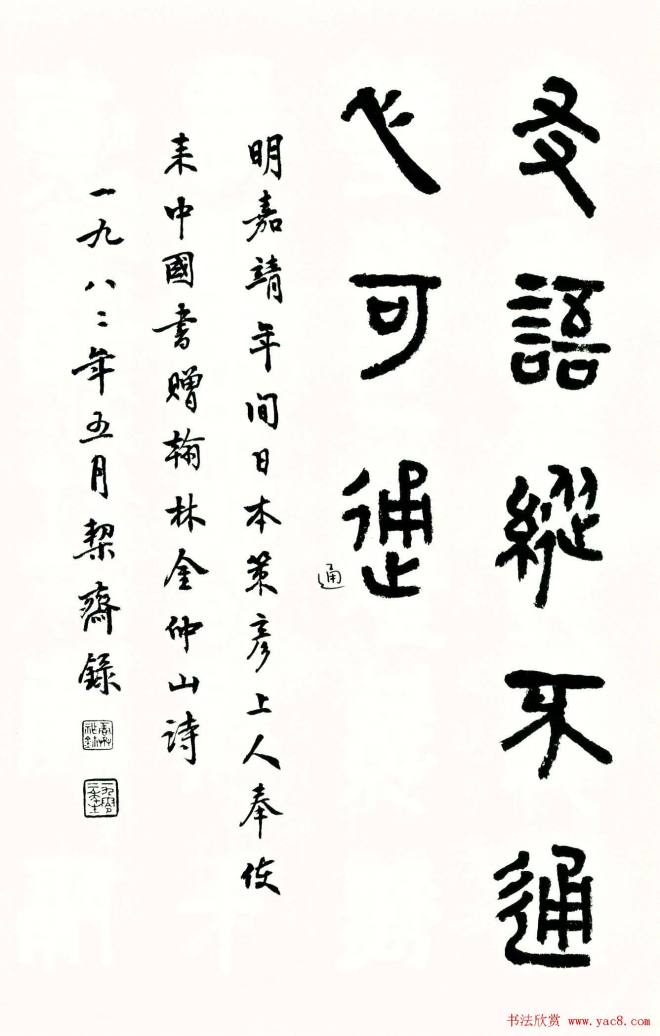 友語縱不通
心可通
通
明嘉靖年間日本策彦上人奉使
来中國書贈翰林金仲山詩
一九八二年五月栔齋録
书法欣赏 www.yac8.com